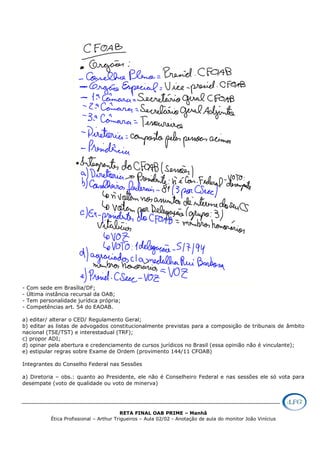 CFOAB
• Órgãos:
- Conselho Pleno = Presid. CFOAB
- Órgão Especial = Vice-presid. CFOAB
- 1ª Câmara = Secretário Geral CFOAB
- 2ª Câmara = Secretário Geral Adjunto
- 3ª Câmara = Tesoureiro
- Diretoria: composta pelas pessoas acima
- Presidência
• Integrantes do CFOAB (Sessões)
a) Diretoria → Presidente: ñ é Con. Federal - VOTO: desempate
b) Conselheiros Federais - 81 (3 por CSecc)
↳ ñ votam nos assuntos de interesse do seu CS
↳ votam por Delegação (grupo: 3)
c) Ex-presidentes do CFOAB = membros honorários
vitalícios
↳ VOZ
↳ VOTO: 1 delegação - 5/7/94
d) agraciados c/ a medalha Rui Barbosa
membros honorários = VOZ
e) Presid. CSecc - VOZ
- Com sede em Brasília/DF;
- Última instância recursal da OAB;
- Tem personalidade jurídica própria;
- Competências art. 54 do EAOAB.
a) editar/ alterar o CED/ Regulamento Geral;
b) editar as listas de advogados constitucionalmente previstas para a composição de tribunais de âmbito
nacional (TSE/TST) e interestadual (TRF);
c) propor ADI;
d) opinar pela abertura e credenciamento de cursos jurídicos no Brasil (essa opinião não é vinculante);
e) estipular regras sobre Exame de Ordem (provimento 144/11 CFOAB)
Integrantes do Conselho Federal nas Sessões
a) Diretoria – obs.: quanto ao Presidente, ele não é Conselheiro Federal e nas sessões ele só vota para
desempate (voto de qualidade ou voto de minerva)
RETA FINAL OAB PRIME – Manhã
Ética Profissional – Arthur Trigueros – Aula 02/02 - Anotação de aula do monitor João Vinícius